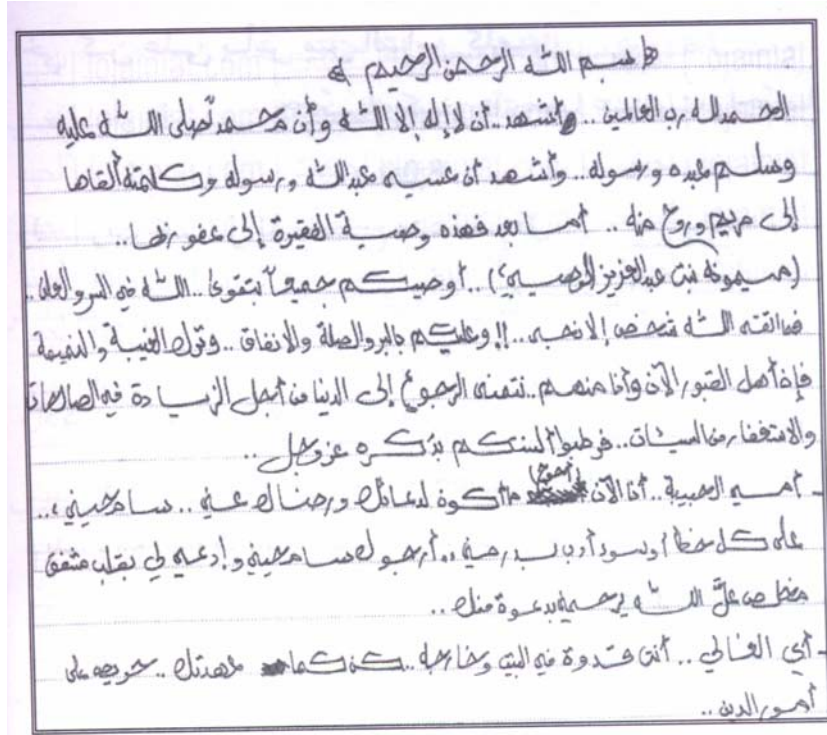 ﴿ بسم الله الرحمن الرحيم ﴾
الحمد لله رب العالمين .. وأشهد .. أن لا إله إلا الله وأن محمد صلى الله عليه
وسلم عبده ورسوله .. وأشهد أن عيسى عبد الله ورسوله وكلمته ألقاها
إلى مريم وروح منه .. أما بعد فهذه وصية الفقيرة إلى عفو ربها ..
(ميمونة بنت عبدالعزيز الوهيبي) .. أوصيكم جميعاً بتقوى .. الله في السر والعلن ..
فما اتقى الله شخص إلا نجى .. !! وعليكم بالبر والصلة والانفاق .. وترك الغيبة والنميمة
فإن أهل القبور الآن وأنا منهم .. نتمنى الرجوع إلى الدنيا من أجل الزيادة في الصالحات
والاستغفار من السيئات .. فرطبوا ألسنتكم بذكره عز وجل ..
- أمي الحبيبة .. أنا الآن أحوج ما أكون لدعائك ورضاك عني .. سامحيني ..
على كل خطأ أو سوء أدب بدر مني .. أرجوك سامحيني وادعي لي بقلب مشفق
مخلص علَّ الله يرحمني بدعوة منك ..
- أبي الغالي .. أنت قدوة في البيت وخارجه .. كن كما عهدتك .. حريص على
أمور الدين ..